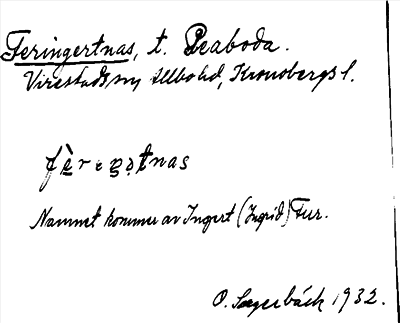 Feringertnas, t. Beaboda.
Virestads sn, Allbo hd, Kronobergs l.
fèrego̤tnas
Namnet kommer av Ingert (Ingrid) Fur.
O. Sagerbäck 1932.